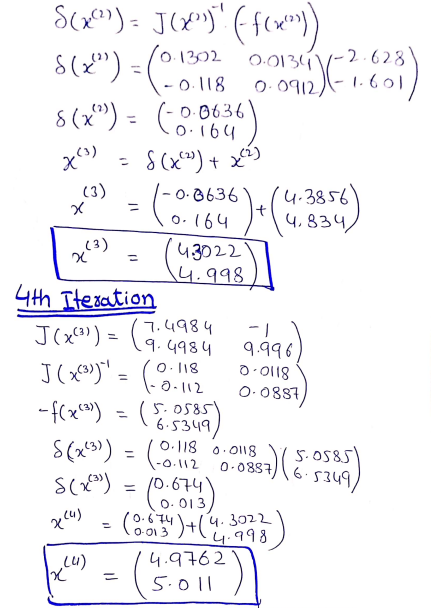 δ(x⁽²⁾) = J(x⁽²⁾)⁻¹ · (-f(x⁽²⁾))
δ(x⁽²⁾) = (0.1302 0.0134)(-2.628)
(-0.118 0.0912)(-1.601)
δ(x⁽²⁾) = (-0.3636)
(0.164)
x⁽³⁾ = δ(x⁽²⁾) + x⁽²⁾
x⁽³⁾ = (-0.3636) + (4.3856)
(0.164) (4.834)
x⁽³⁾ = (4.3022)
(4.998)
4th Iteration
J(x⁽³⁾) = (7.4984 -1)
(9.4984 9.996)
J(x⁽³⁾)⁻¹ = (0.118 0.0118)
(-0.112 0.0887)
-f(x⁽³⁾) = (5.0585)
(6.5349)
δ(x⁽³⁾) = (0.118 0.0118)(5.0585)
(-0.112 0.0887)(6.5349)
δ(x⁽³⁾) = (0.674)
(0.013)
x⁽⁴⁾ = (0.674)+(4.3022)
(0.013) (4.998)
x⁽⁴⁾ = (4.9762)
(5.011)